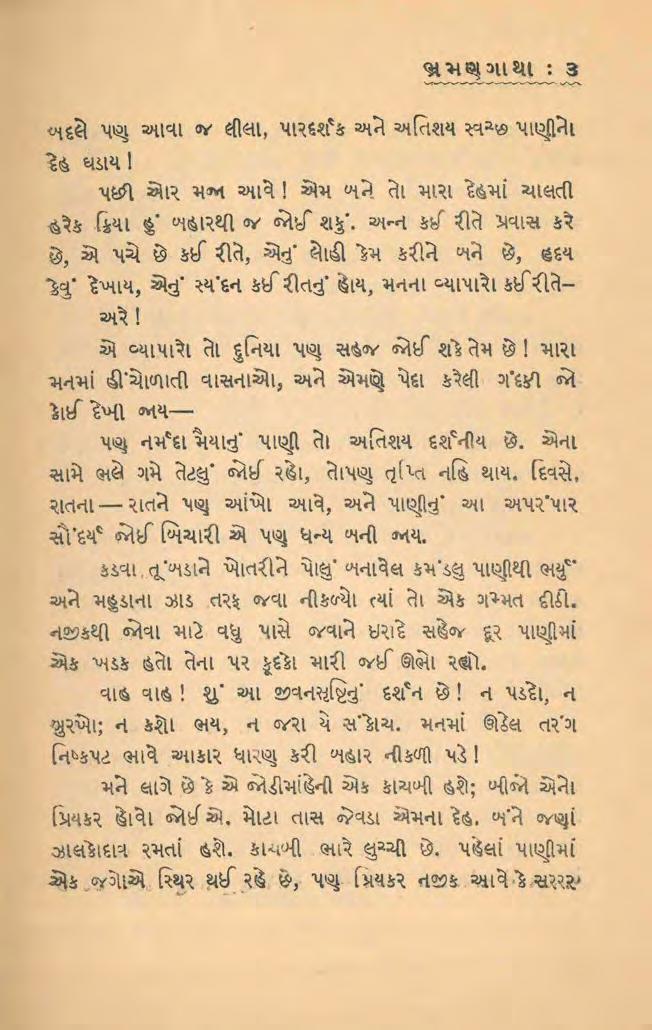 ભ્રમણગાથા : ૩
બદલે પણ આવા જ લીલા, પારદર્શક અને અતિશય સ્વચ્છ પાણીનો
દેહ ઘડાય !
પછી ઓર મજા આવે ! એમ બને તો મારા દેહમાં ચાલતી
હરેક ક્રિયા હું બહારથી જ જોઈ શકું. અન્ન કઈ રીતે પ્રવાસ કરે
છે, એ પચે છે કઈ રીતે, એનું લોહી કેમ કરીને બને છે, હૃદય
કેવું દેખાય, એનું સ્પંદન કઈ રીતનું હોય, મનના વ્યાપારો કઈ રીતે–
અરે !
એ વ્યાપારો તો દુનિયા પણ સહજ જોઈ શકે તેમ છે ! મારા
મનમાં હીંચોળાતી વાસનાઓ, અને એમણે પેદા કરેલી ગંદકી જો
કોઈ દેખી જાય—
પણ નર્મદા મૈયાનું પાણી તો અતિશય દર્શનીય છે. એના
સામે ભલે ગમે તેટલું જોઈ રહો, તોપણ તૃપ્તિ નહિ થાય. દિવસે,
રાતના — રાતને પણ આંખો આવે, અને પાણીનું આ અપરંપાર
સૌંદર્ય જોઈ બિચારી એ પણ ધન્ય બની જાય.
કડવા તૂંબડાને ખોતરીને પોલું બનાવેલ કમંડલુ પાણીથી ભર્યું
અને મહુડાના ઝાડ તરફ જવા નીકળ્યો ત્યાં તો એક ગમ્મત દીઠી.
નજીકથી જોવા માટે વધુ પાસે જવાને ઇરાદે સહેજ દૂર પાણીમાં
એક ખડક હતો તેના પર કૂદકો મારી જઈ ઊભો રહ્યો.
વાહ વાહ ! શું આ જીવનસૃષ્ટિનું દર્શન છે ! ન પડદો, ન
બુરખો; ન કશો ભય, ન જરા યે સંકોચ. મનમાં ઊઠેલ તરંગ
નિષ્કપટ ભાવે આકાર ધારણ કરી બહાર નીકળી પડે !
મને લાગે છે કે એ જોડીમાંહેની એક કાચબી હશે; બીજો એનો
પ્રિયકર હોવો જોઈએ. મોટા તાસ જેવડા એમના દેહ. બંને જણાં
ઝાલકોદાવ રમતાં હશે. કાચબી ભારે લુચ્ચી છે. પહેલાં પાણીમાં
એક જગોએ સ્થિર થઈ રહે છે, પણ પ્રિયકર નજીક આવે કે સરરર